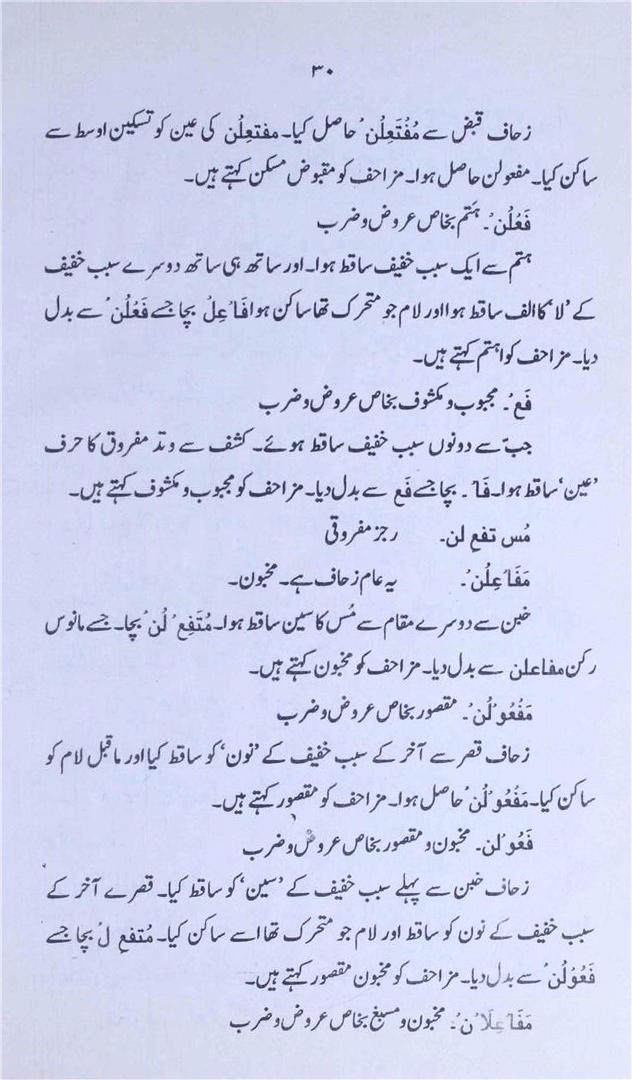 ۳۰
زحاف قبض سے مُفْتَعِلُن' حاصل کیا۔ مفتعِلُن کی عین کو تسکین اوسط سے
ساکن کیا۔ مفعولن حاصل ہوا۔ مزاحف کو مقبوض مسکن کہتے ہیں۔
فَعْلُن'۔ ہَتم بخاص عروض و ضرب
ہتم سے ایک سبب خفیف ساقط ہوا۔ اور ساتھ ہی ساتھ دوسرے سبب خفیف
کے 'لا' کا الف ساقط ہوا اور لام جو متحرک تھا ساکن ہوا فَا' عِلُ بچا جسے فَعْلُن' سے بدل
دیا۔ مزاحف کو اہتم کہتے ہیں۔
فَع'۔ مجبوب و مکشوف بخاص عروض و ضرب
جبّ سے دونوں سبب خفیف ساقط ہوئے۔ کشف سے وتد مفروق کا حرف
'عین' ساقط ہوا۔ فَا۔ بچا جسے فَع سے بدل دیا۔ مزاحف کو مجبوب و مکشوف کہتے ہیں۔
مُس تفعِ لن۔ رجز مفروقی
مَفَا'عِلُن'۔ یہ عام زحاف ہے۔ مخبون۔
خبن سے دوسرے مقام سے مُس کا سین ساقط ہوا۔ مُتَفعِ' لُن' بچا۔ جسے مانوس
رکن مفاعلن سے بدل دیا۔ مزاحف کو مخبون کہتے ہیں۔
مَفْعُو'لُن'۔ مقصور بخاص عروض و ضرب
زحاف قصر سے آخر کے سبب خفیف کے 'نون' کو ساقط کیا اور ماقبل لام کو
ساکن کیا۔ مَفْعُو'لُن' حاصل ہوا۔ مزاحف کو مقصور کہتے ہیں۔
فَعُو'لن۔ مخبون و مقصور بخاص عروض و ضرب
زحاف خبن سے پہلے سبب خفیف کے 'سین' کو ساقط کیا۔ قصرے آخر کے
سبب خفیف کے نون کو ساقط اور لام جو متحرک تھا اسے ساکن کیا۔ مُتفعِ لُ بچا جسے
فَعُوْلُن' سے بدل دیا۔ مزاحف کو مخبون مقصور کہتے ہیں۔
مَفَا'عِلَا'ن'۔ مخبون و مسبغ بخاص عروض و ضرب